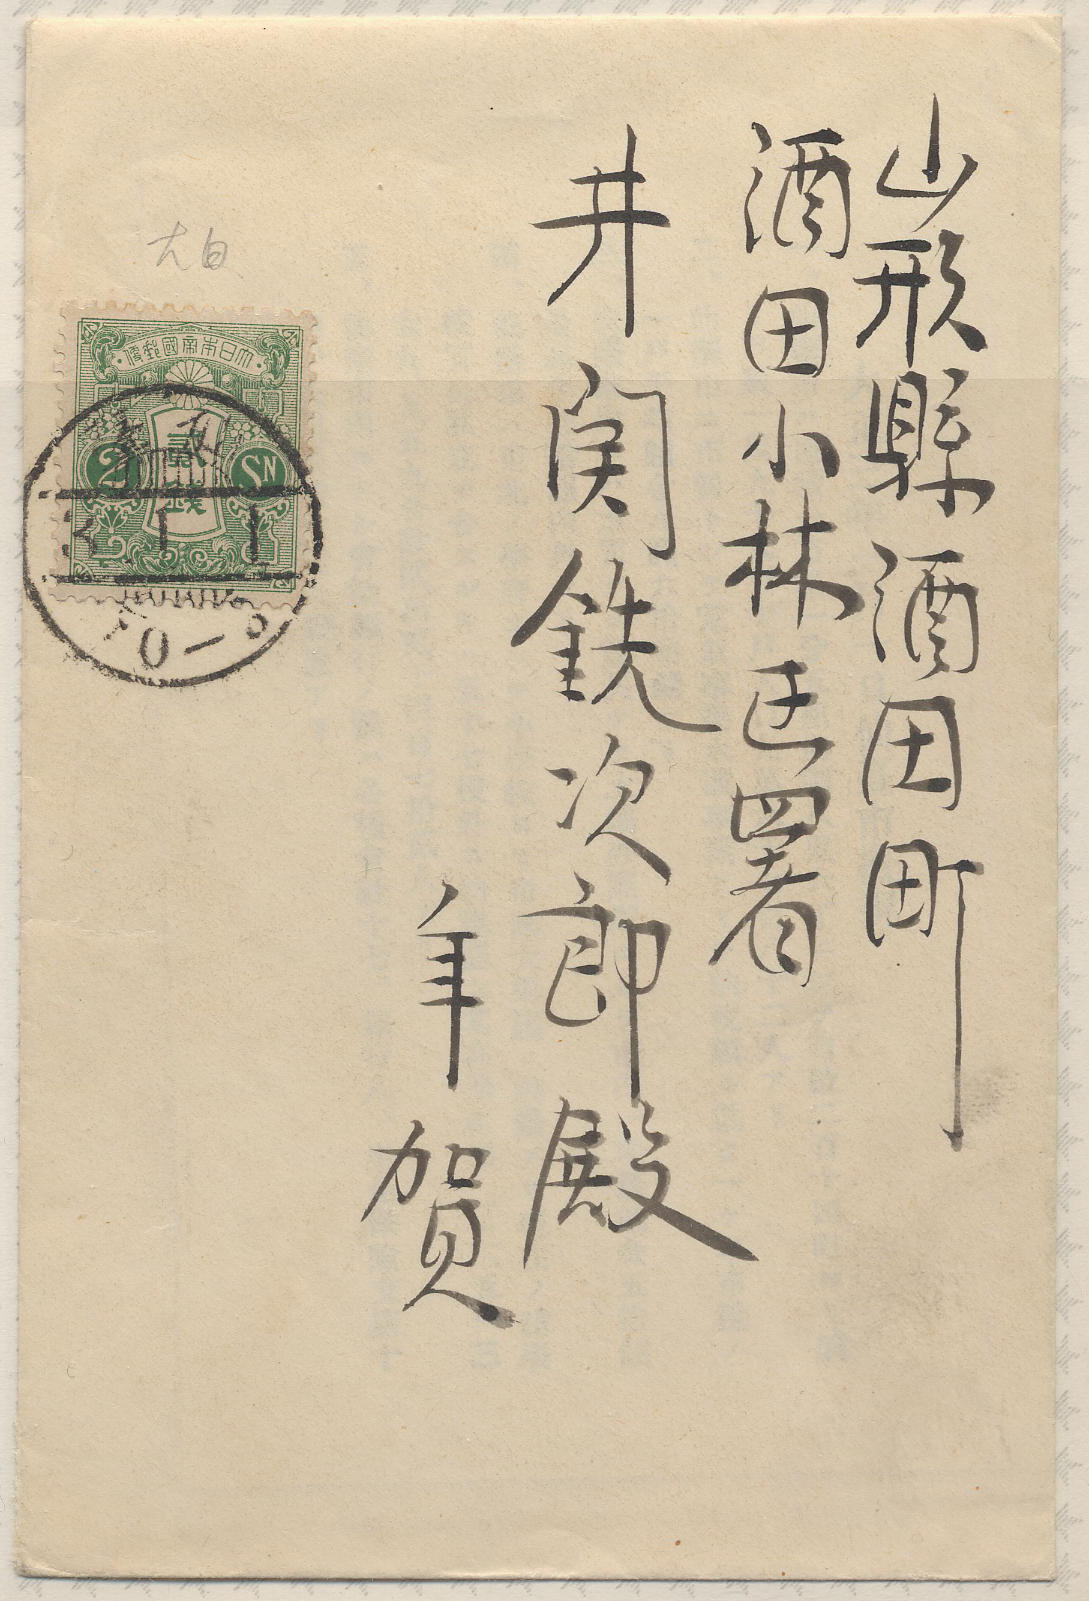 山形縣酒田町
酒田小林区署
井関銑次郎殿
年賀
大白
大日本帝國郵便
貳錢
2 SN
3 1 1